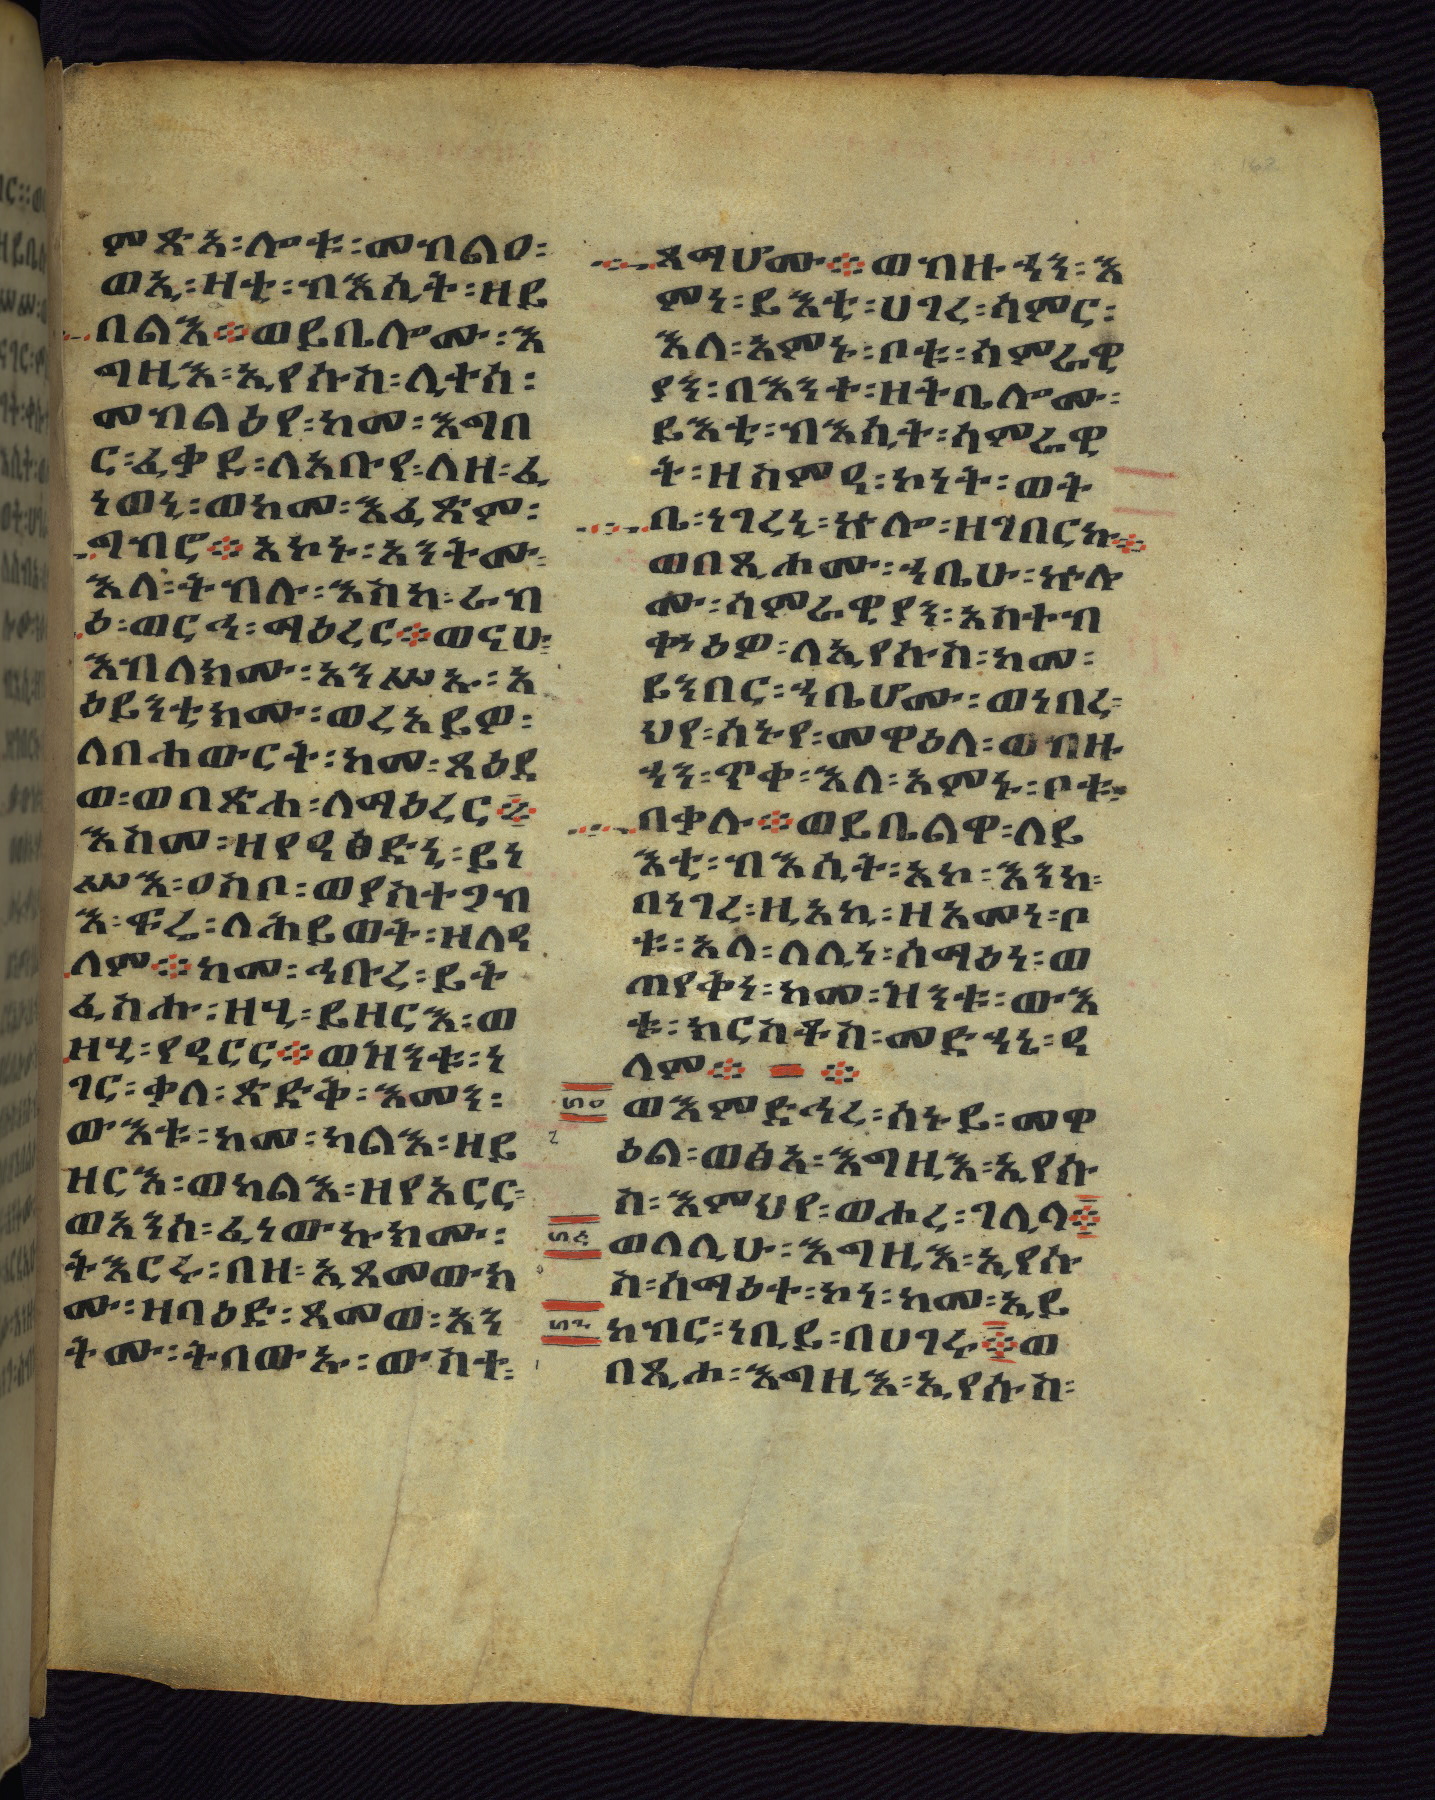 ምጽአ፡ሎቱ፡መብልዐ፡
ወኢ፡ዘቲ፡ብእሲት፡ዘይ
በልእ። ወይቤሎሙ፡እ
ግዚእ፡ኢየሱስ፡ሊተሰ፡
መብልዕየ፡ከመ፡እግበ
ር፡ፈቃደ፡ለአቡየ፡ለዘ፡ፈ
ነወኒ፡ወከመ፡እፈጽም፡
ግብሮ። አኮኑ፡አንትሙ፡
እለ፡ትብሉ፡እስከ፡ራብ
ዕ፡ወርኅ፡ማዕረር። ወናሁ፡
እብለክሙ፡አንሥኡ፡አ
ዕይንቲክሙ፡ወረአይዎ፡
ለበሐውርት፡ከመ፡ጸዕደ
ወ፡ወበጽሐ፡ለማዕረር።
እስመ፡ዘየዓፅድኒ፡ይነ
ሥእ፡ዐስቦ፡ወያስተጋብ
እ፡ፍሬ፡ለሕይወት፡ዘለዓ
ለም። ከመ፡ኅቡረ፡ይት
ፈሥሑ፡ዘሂ፡ይዘርእ፡ወ
ዘሂ፡የዓርር። ወዝንቱ፡ነ
ገር፡ቃለ፡ጽድቅ፡እሙን፡
ውእቱ፡ከመ፡ካልእ፡ዘይ
ዘርእ፡ወካልእ፡ዘየአርር፡
ወአንሰ፡ፈነውኩክሙ፡
ትእርሩ፡በዘ፡ኢጻመውክ
ሙ፡ዘባዕድ፡ጻመወ፡አን
ትሙ፡ትበውኡ፡ውስተ፡
ጻማሆሙ። ወብዙኃን፡እ
ምነ፡ይእቲ፡ሀገረ፡ሳምር፡
እለ፡አምኑ፡ቦቱ፡ሳምራዊ
ያን፡በእንተ፡ዘትቤሎሙ፡
ይእቲ፡ብእሲት፡ሳምራዊ
ት፡ዘስምዓ፡ኮነት፡ወት
ቤ፡ነገረኒ፡ኵሎ፡ዘገበርኩ።
ወበጺሖሙ፡ኀቤሁ፡ኵሎ
ሙ፡ሳምራዊያን፡አስተብ
ቍዕዎ፡ለኢየሱስ፡ከመ፡
ይንበር፡ኀቤሆሙ፡ወነበረ፡
ህየ፡ሰኑየ፡መዋዕለ፡ወብዙ
ኃን፡ጥቀ፡እለ፡አምኑ፡ቦቱ፡
በቃሉ። ወይቤልዋ፡ለይ
እቲ፡ብእሲት፡አኮ፡እንከ፡
በነገረ፡ዚአኪ፡ዘአመነ፡ቦ
ቱ፡አላ፡ለሊነ፡ሰማዕነ፡ወ
ጠየቅነ፡ከመ፡ዝንቱ፡ውእ
ቱ፡ክርስቶስ፡መድኃኔ፡ዓ
ለም።
ወእምድኅረ፡ሰኑይ፡መዋ
ዕል፡ወፅአ፡እግዚእ፡ኢየሱ
ስ፡እምህየ፡ወሖረ፡ገሊላ።
ወለሊሁ፡እግዚእ፡ኢየሱ
ስ፡ሰማዕተ፡ኮነ፡ከመ፡ኢይ
ከብር፡ነቢይ፡በሀገሩ። ወ
በጺሖ፡እግዚእ፡ኢየሱስ፡